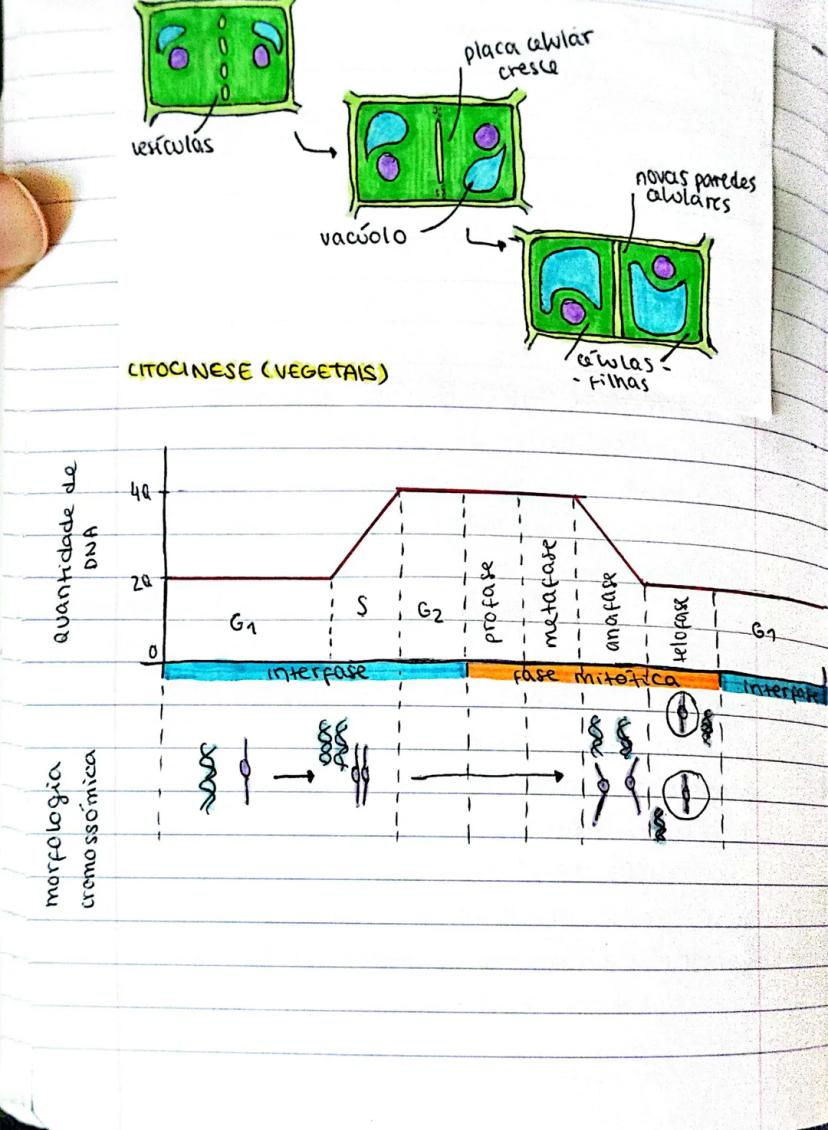 vesículas
placa celular
cresce
vacúolo
novas paredes
celulares
células-
-filhas
CITOCINESE (VEGETAIS)
quantidade de
DNA
4Q
2Q
0
G1
S
G2
profase
metafase
anafase
telofase
G1
interfase
fase mitótica
interfase
morfologia
cromossómica